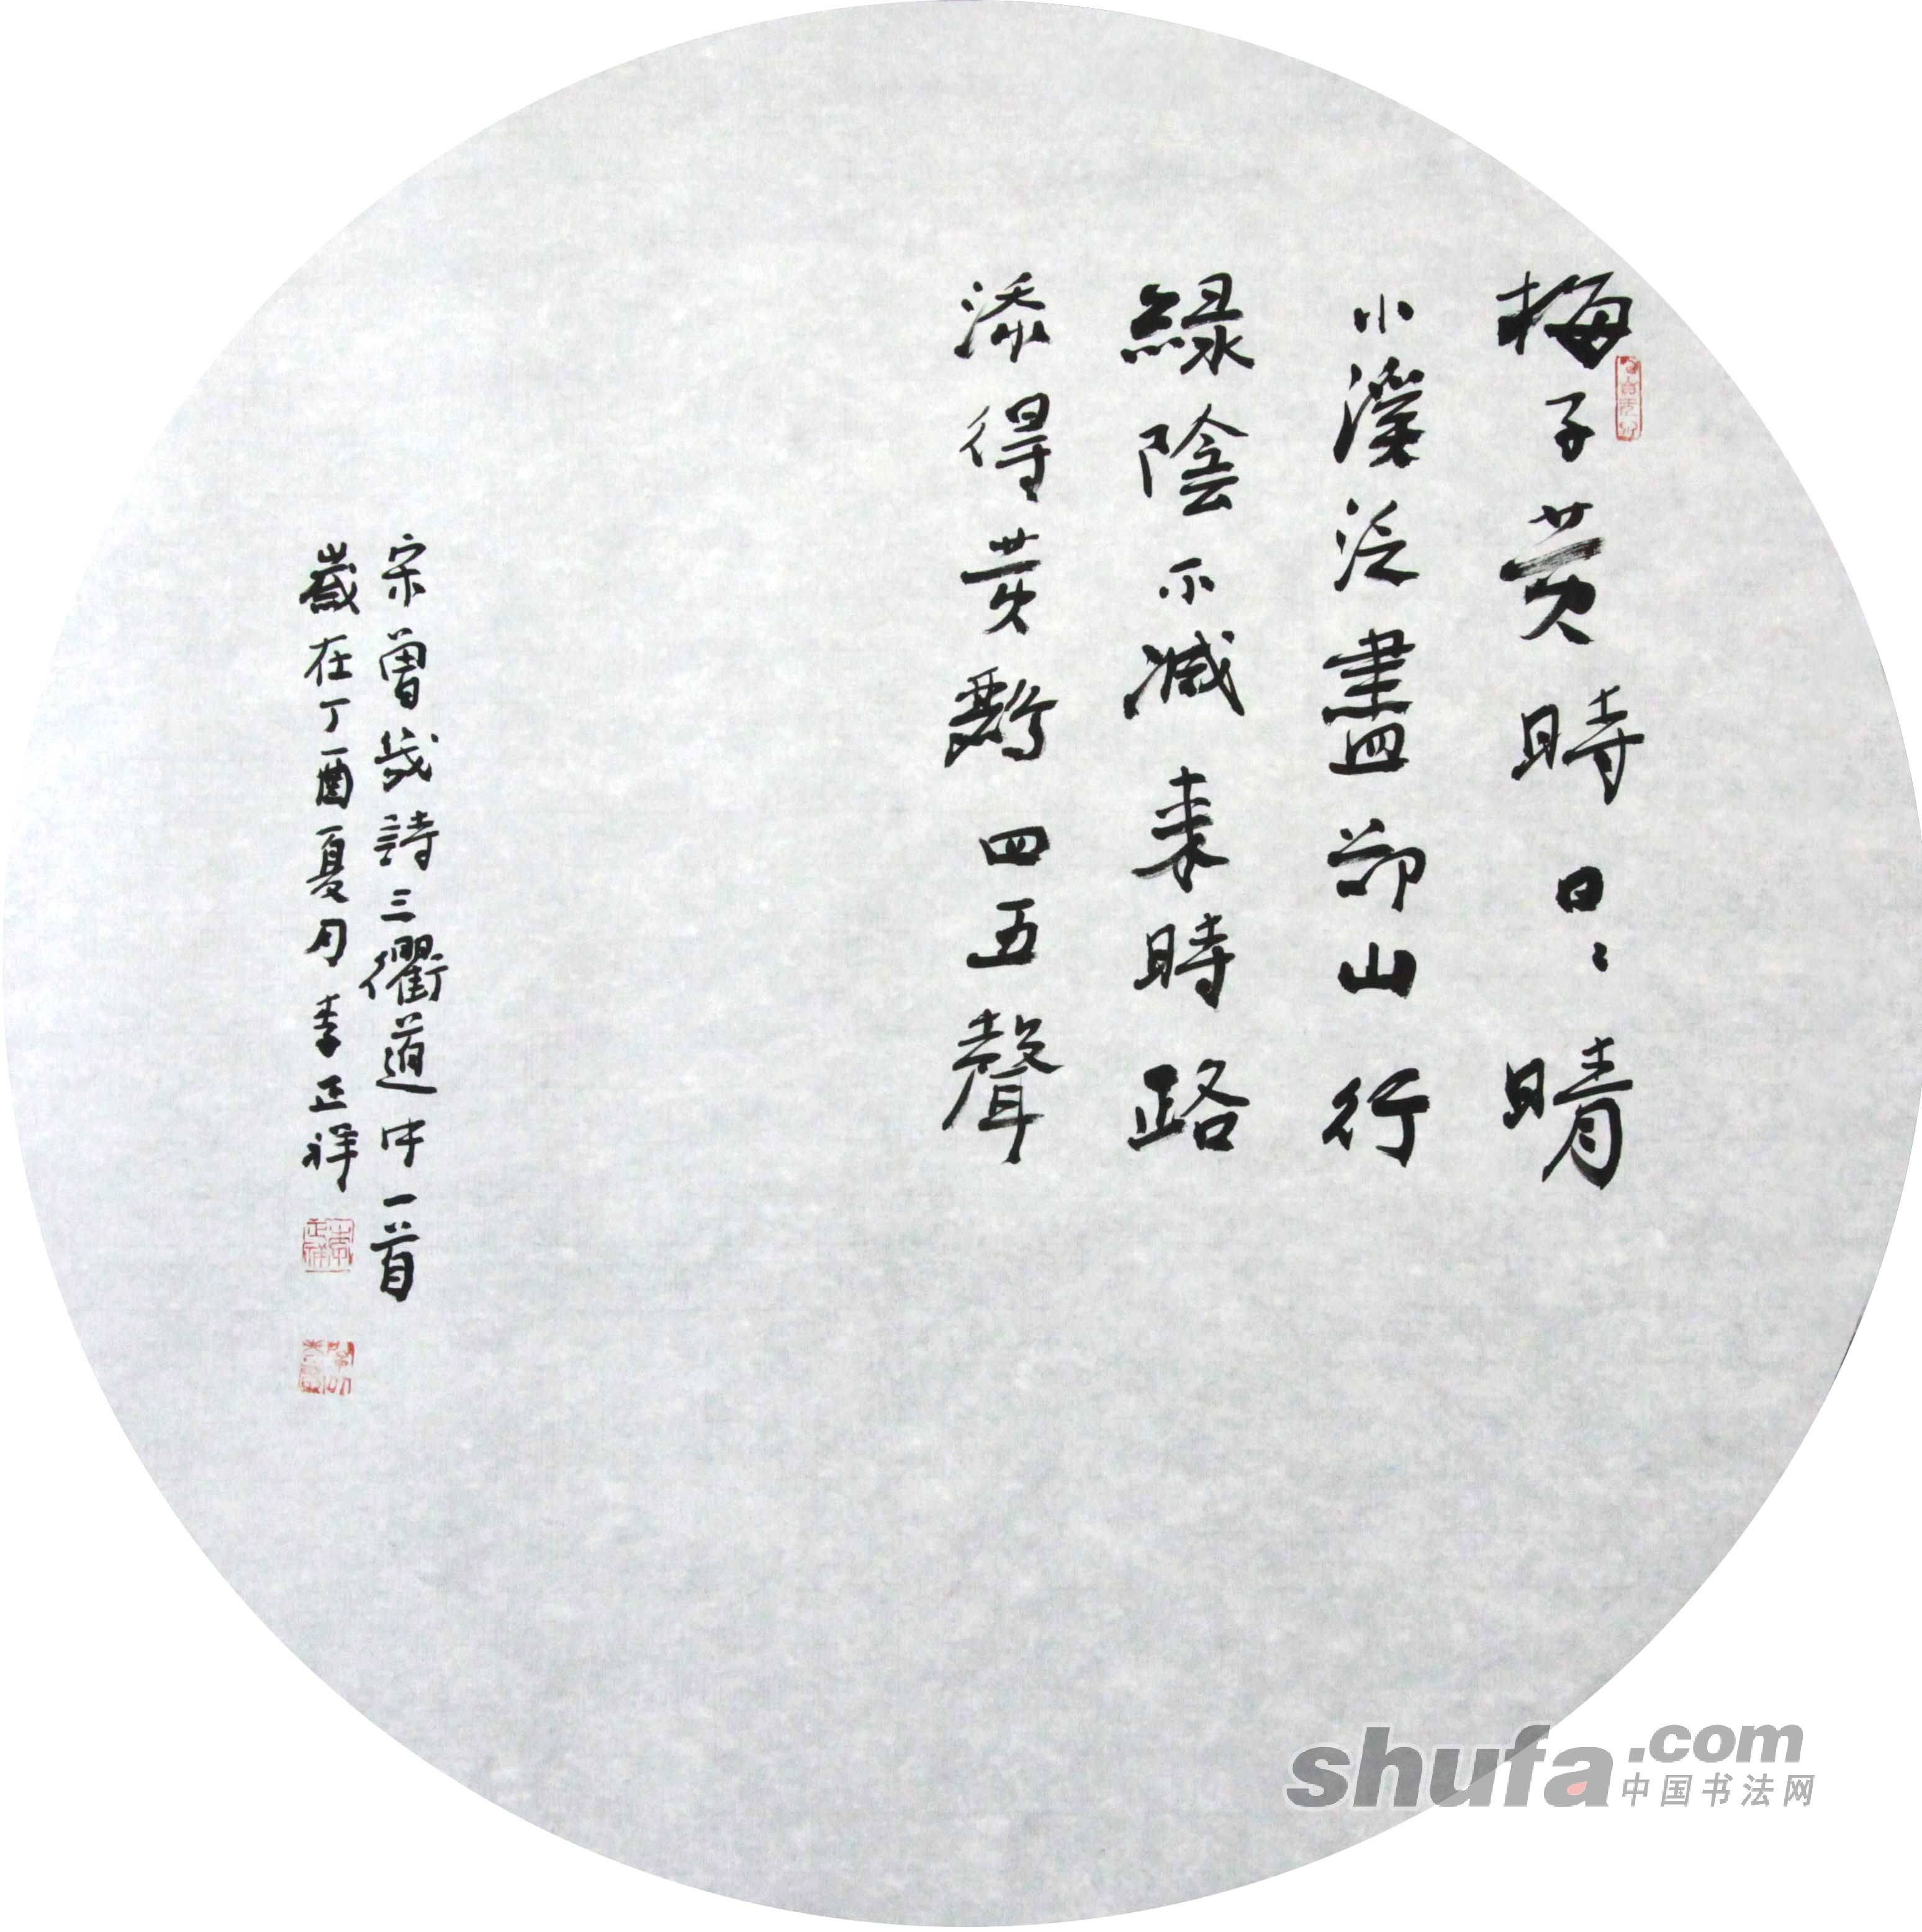 梅子黄時日〻晴
小溪泛盡却山行
緑陰不減来時路
添得黄鸝四五聲
宋曾幾詩三衢道中一首
歲在丁酉夏月李正祥
shufa.com
中国书法网